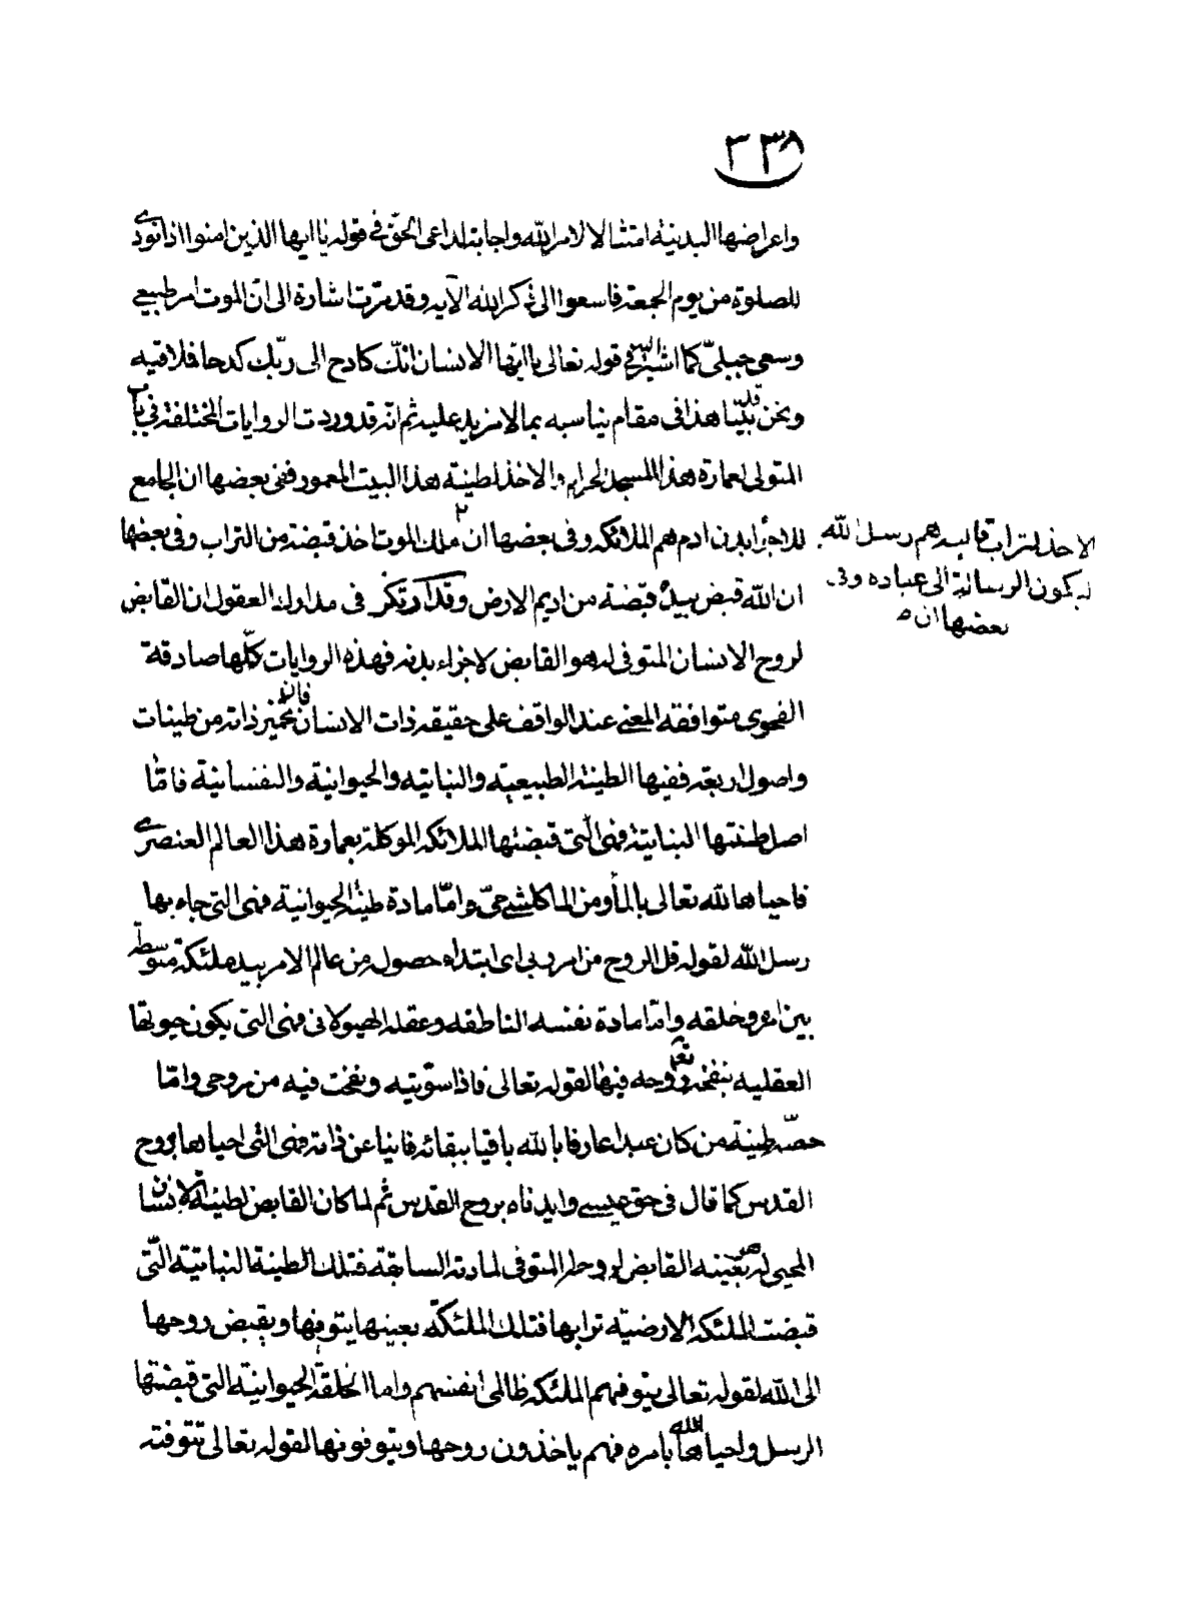 ٣٣٨
واعراضها البدنية امتثالا لامر الله واجابة لداعى الحق فى قوله يا ايها الذين امنوا اذا نودى
للصلوة من يوم الجمعة فاسعوا الى ذكر الله الآية وقد مرت اشارة الى ان الموت امر طبيعى
وسعى جبلىّ كما اشير اليه فى قوله تعالى يا ايها الانسان انّك كادح الى ربّك كدحا فملاقيه
ونحن قد بيّنا هذا فى مقام يناسبه بما لا مزيد عليه ثم انه قد وردت الروايات المختلفة فى باب
المتولى لعمارة هذا المسجد الحرام والاخذ لطينة هذا البيت المعمور ففى بعضها ان الجامع
للاجزاء لبدن ادم هم الملائكة وفى بعضها ان ملك الموت اخذ قبضة من التراب وفى بعضها
الاخذ لتراب قالبه هم رسل الله
ليكون الرسالة الى عباده وفى
بعضها ان
ان الله قبض بيده قبضة من اديم الارض وقد ارتكز فى مدارك العقول ان القابض
لروح الانسان المتوفى له هو القابض لاجزاء بدنه فهذه الروايات كلّها صادقة
الفحوى متوافقة المعنى عند الواقف على حقيقة ذات الانسان فان تخمير ذاته من طينات
واصول اربعة ففيها الطينة الطبيعية والنباتية والحيوانية والنفسانية فامّا
اصل طينتها النباتية فهى الّتى قبضتها الملائكة الموكلة بعمارة هذا العالم العنصرى
فاحياها الله تعالى بالماء ومن الماء كل شىء حىّ وامّا مادة طينة الحيوانية فهى التى جاء بها
رسل الله لقوله قل الروح من امر ربى اى ابتداء حصوله من عالم الامر بيد ملئكة متوسطة
بين امره وخلقه وامّا مادة نفسه الناطقة وعقله الهيولانى فهى التى يكون حيوتها
العقلية بنفخه تع روحه فيها لقوله تعالى فاذا سوّيته ونفخت فيه من روحى وامّا
حصّة طينة من كان عبدا عارفا بالله باقيا ببقائه فانيا عن ذاته فهى التى احياها بروح
القدس كما قال فى حق عيسى وايدناه بروح القدس ثم لما كان القابض لطينة الانسان
المحيى له هو بعينه القابض لروحه المتوفى لمادته السابقة فتلك الطينة النباتية الّتى
قبضت الملئكة الارضية ترابها فتلك الملئكة بعينها يتوفها ويقبض روحها
الى الله لقوله تعالى يتوفهم الملئكة ظالمى انفسهم واما الخلقة الحيوانية التى قبضتها
الرسل واحياها الله بامره فهم ياخذون روحها ويتوفونها لقوله تعالى تتوفته